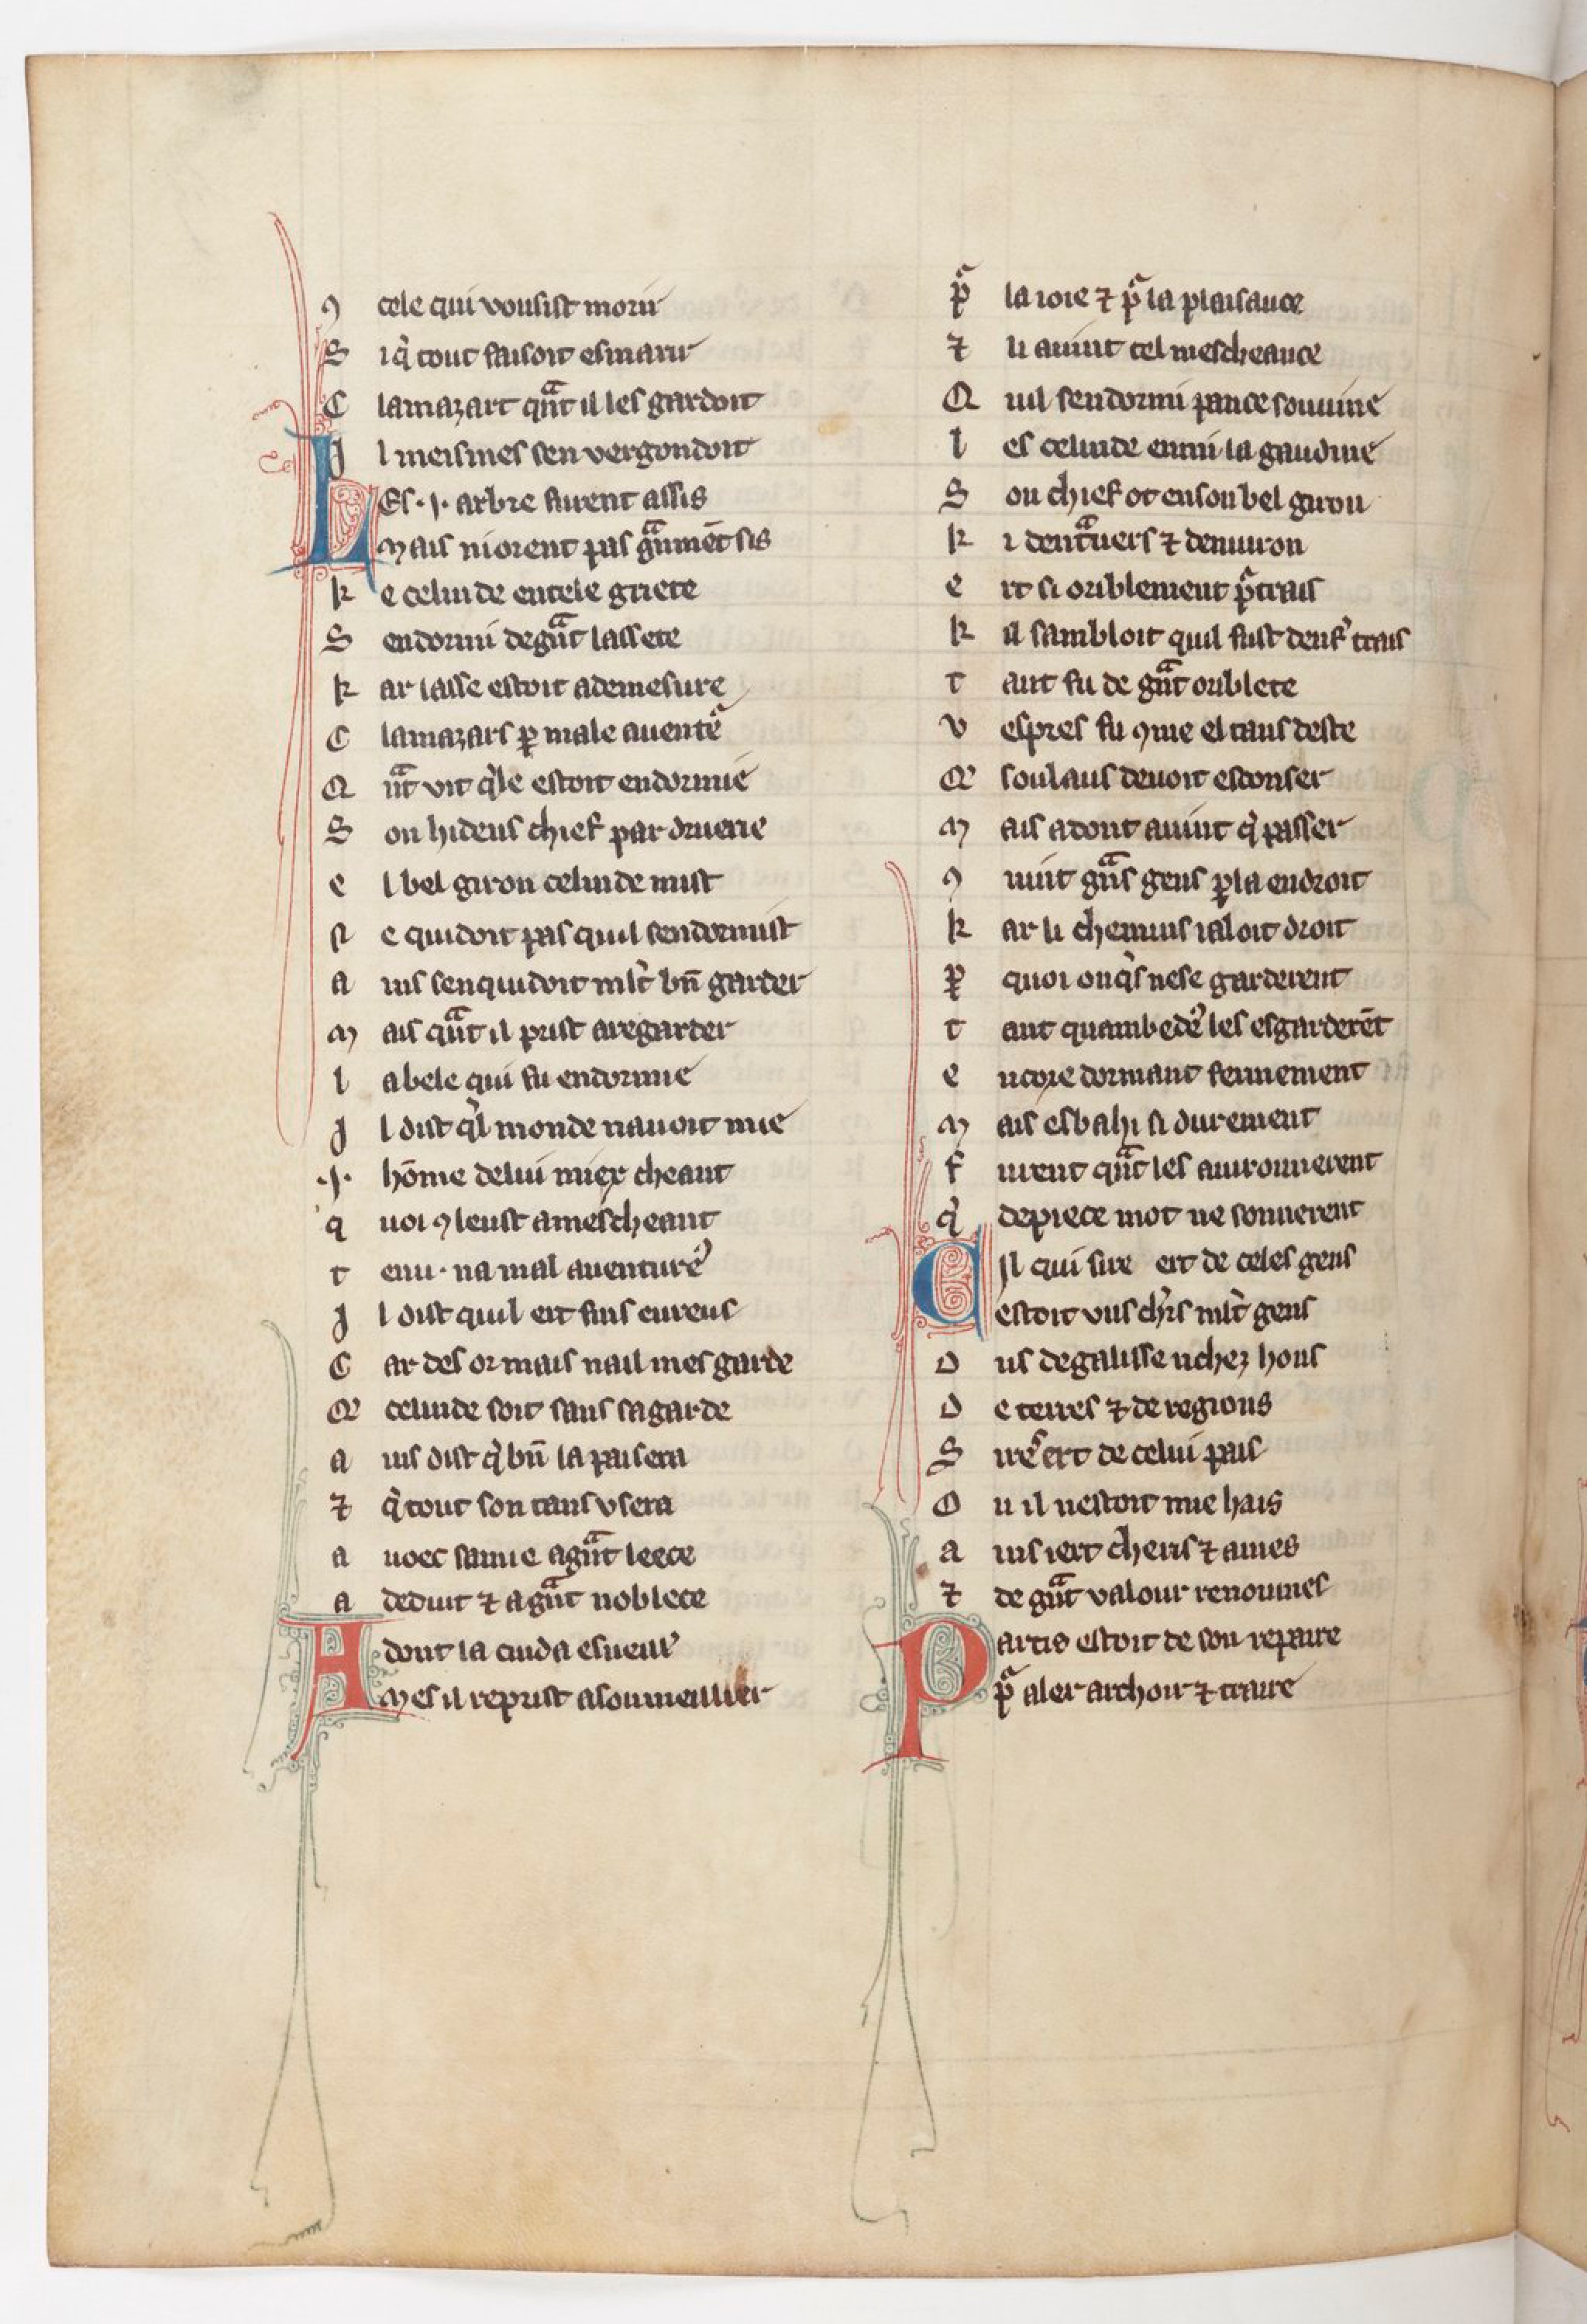 ꝯ cele qui vousist morir
S i q̇ tout faisoit esmarir
C lamazart qͣnt il les gardoit
J l meismes sen vergondoit
LEs .j. arbre furent assis
Mais niorent pas gͣnmēt sis
k e celinde en tele griete
S endormi de gͣnt lassete
k ar lasse estoit a demesure
C lamazars ꝑ male auentͥe
Q ͣnt vit q̇le estoit endormie
S on hideus chief par druerie
e l bel giron celinde mist
n e quidoit pas quil sendormist
a ins sen quidoit ml̃t bn̄ garder
m ais qͣnt il prist a regarder
l a bele qui fu endormie
J l dist q̇l monde nauoit mie
.j. hōme de lui miex cheant
q uoi ꝯ leust a mescheant
t enu . na mal auenture᷒
J l dist quil ert fins eureus
C ar des or mais nail mes garde
Q̃ celinde soit sans sa garde
a ins dist q̇ bn̄ la paisera
⁊ q̇ tout son tans vsera
a uoec samie a gͣnt leece
a deduit ⁊ a gͣnt noblece
Adont la cuida esueill᷒
Mes il reprist a soumeillier
pͬ la ioie ⁊ pͬ la plaisance
⁊ li auint cel mescheance
Q uil sendormi pance souuine
l es celinde enmi la gaudine
S on chief ot en son bel giron
k i dentͣuers ⁊ denuiron
e rt si oriblement pͬtrais
k il sambloit quil fust denf᷒ trais
t ant fu de gͣnt oriblete
v espres fu ꝯme el tans deste
Q̃ soulaus deuoit esconser
m ais adont auint q̇ passer
ꝯ uint gͣns gens ꝑ la endroit
k ar li chemins i aloit droit
ꝑ quoi onq̇s ne se garderent
t ant quambede᷒ les esgarderēt
e ncore dormant fermement
m ais esbahi si durement
f urent qͣnt les auironnerent
q̇ de piece mot ne sonnerent
CJl qui sire ert de celes gens
estoit vns ch̓rs ml̃t gens
D us de galisse richez hons
D e terres ⁊ de regions
S ires ert de celui pais
O u il nestoit mie hais
a ins iert cheris ⁊ ames
⁊ de gͣnt valour renoumes
Partis estoit de son repaire
pͬ aler archoir ⁊ traire